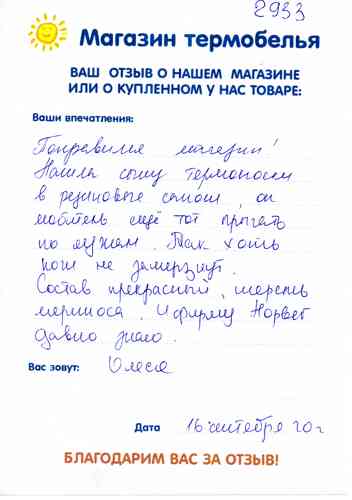 2933
Магазин термобелья
ВАШ ОТЗЫВ О НАШЕМ МАГАЗИНЕ
ИЛИ О КУПЛЕННОМ У НАС ТОВАРЕ:
Ваши впечатления:
Понравился магазин!
Нашла сыну термоноски
в резиновые сапоги, он
любитель ещё тот прыгать
по лужам. Так хоть
ноги не замерзнут.
Состав прекрасный, шерсть
мериноса. И фирму Норвег
давно знаю.
Вас зовут: Олеся
Дата 16 сентября 20 г
БЛАГОДАРИМ ВАС ЗА ОТЗЫВ!